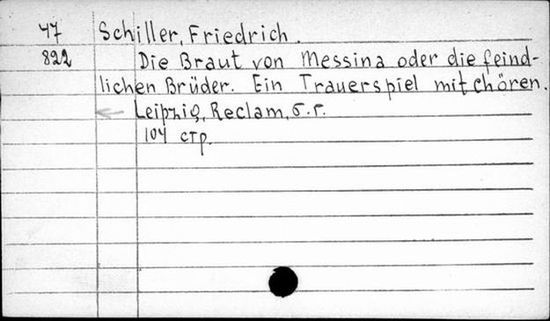 47 Schiller, Friedrich.
822 Die Braut von Messina oder die feind-
lichen Brüder. Ein Trauerspiel mit chören.
Leipzig, Reclam, б.г.
104 стр.